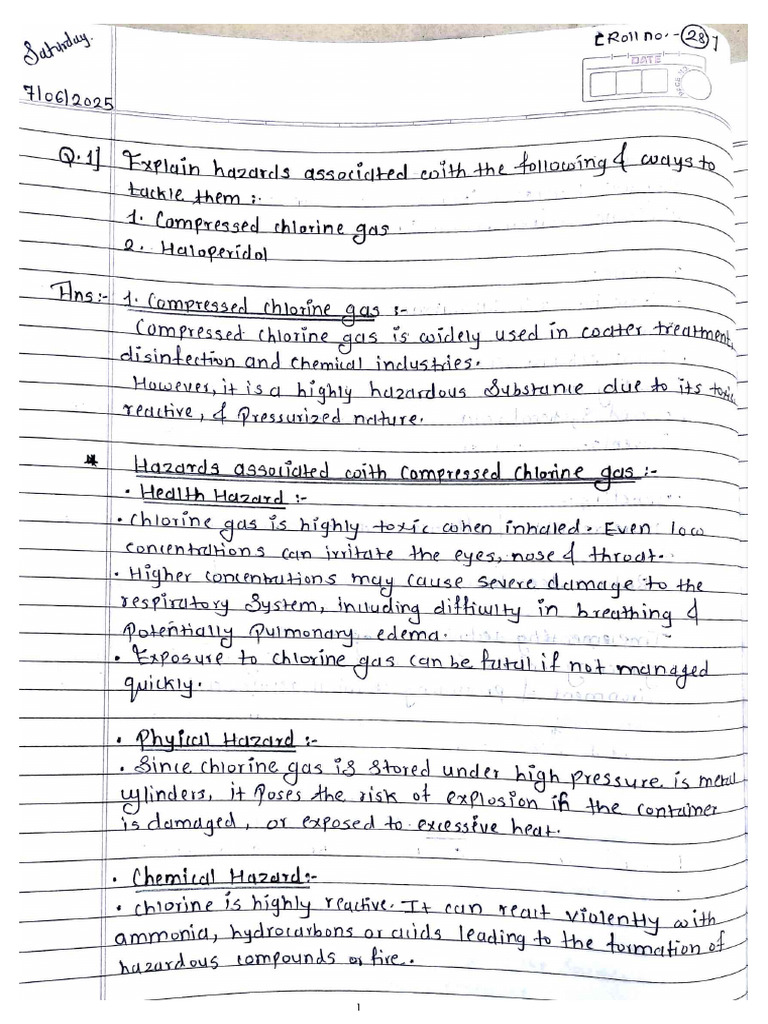 Saturday.
[Roll no. - 28]
DATE
7/06/2025
Q.1] Explain hazards associated with the following & ways to
tackle them :-
1. Compressed chlorine gas
2. Haloperidol
Ans:- 1. Compressed chlorine gas :-
Compressed chlorine gas is widely used in water treatment,
disinfection and chemical industries.
However, it is a highly hazardous substance due to its toxic,
reactive, & pressurized nature.
* Hazards associated with compressed chlorine gas :-
• Health Hazard :-
• chlorine gas is highly toxic when inhaled. Even low
concentrations can irritate the eyes, nose & throat.
• Higher concentrations may cause severe damage to the
respiratory system, including difficulty in breathing &
potentially pulmonary edema.
• Exposure to chlorine gas can be fatal if not managed
quickly.
• Phyical Hazard :-
• Since chlorine gas is stored under high pressure is metal
cylinders, it poses the risk of explosion if the container
is damaged, or exposed to excessive heat.
• Chemical Hazard:-
• chlorine is highly reactive. It can react violently with
ammonia, hydrocarbons or acids leading to the formation of
hazardous compounds or fire.
1